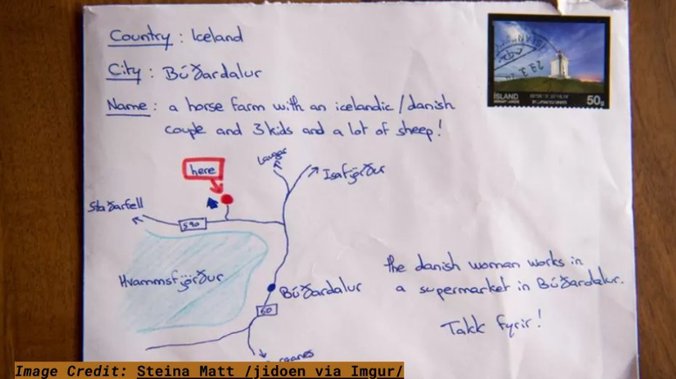 Country : Iceland
City : Búðardalur
Name : a horse farm with an icelandic/danish
couple and 3 kids and a lot of sheep!
ÍSLAND
50g
here
Laugar
Ísafjörður
Staðarfell
590
Hvammsfjörður
Búðardalur
60
the danish woman works in
a supermarket in Búðardalur.
Takk fyrir!
Image Credit: Steina Matt /jidoen via Imgur/